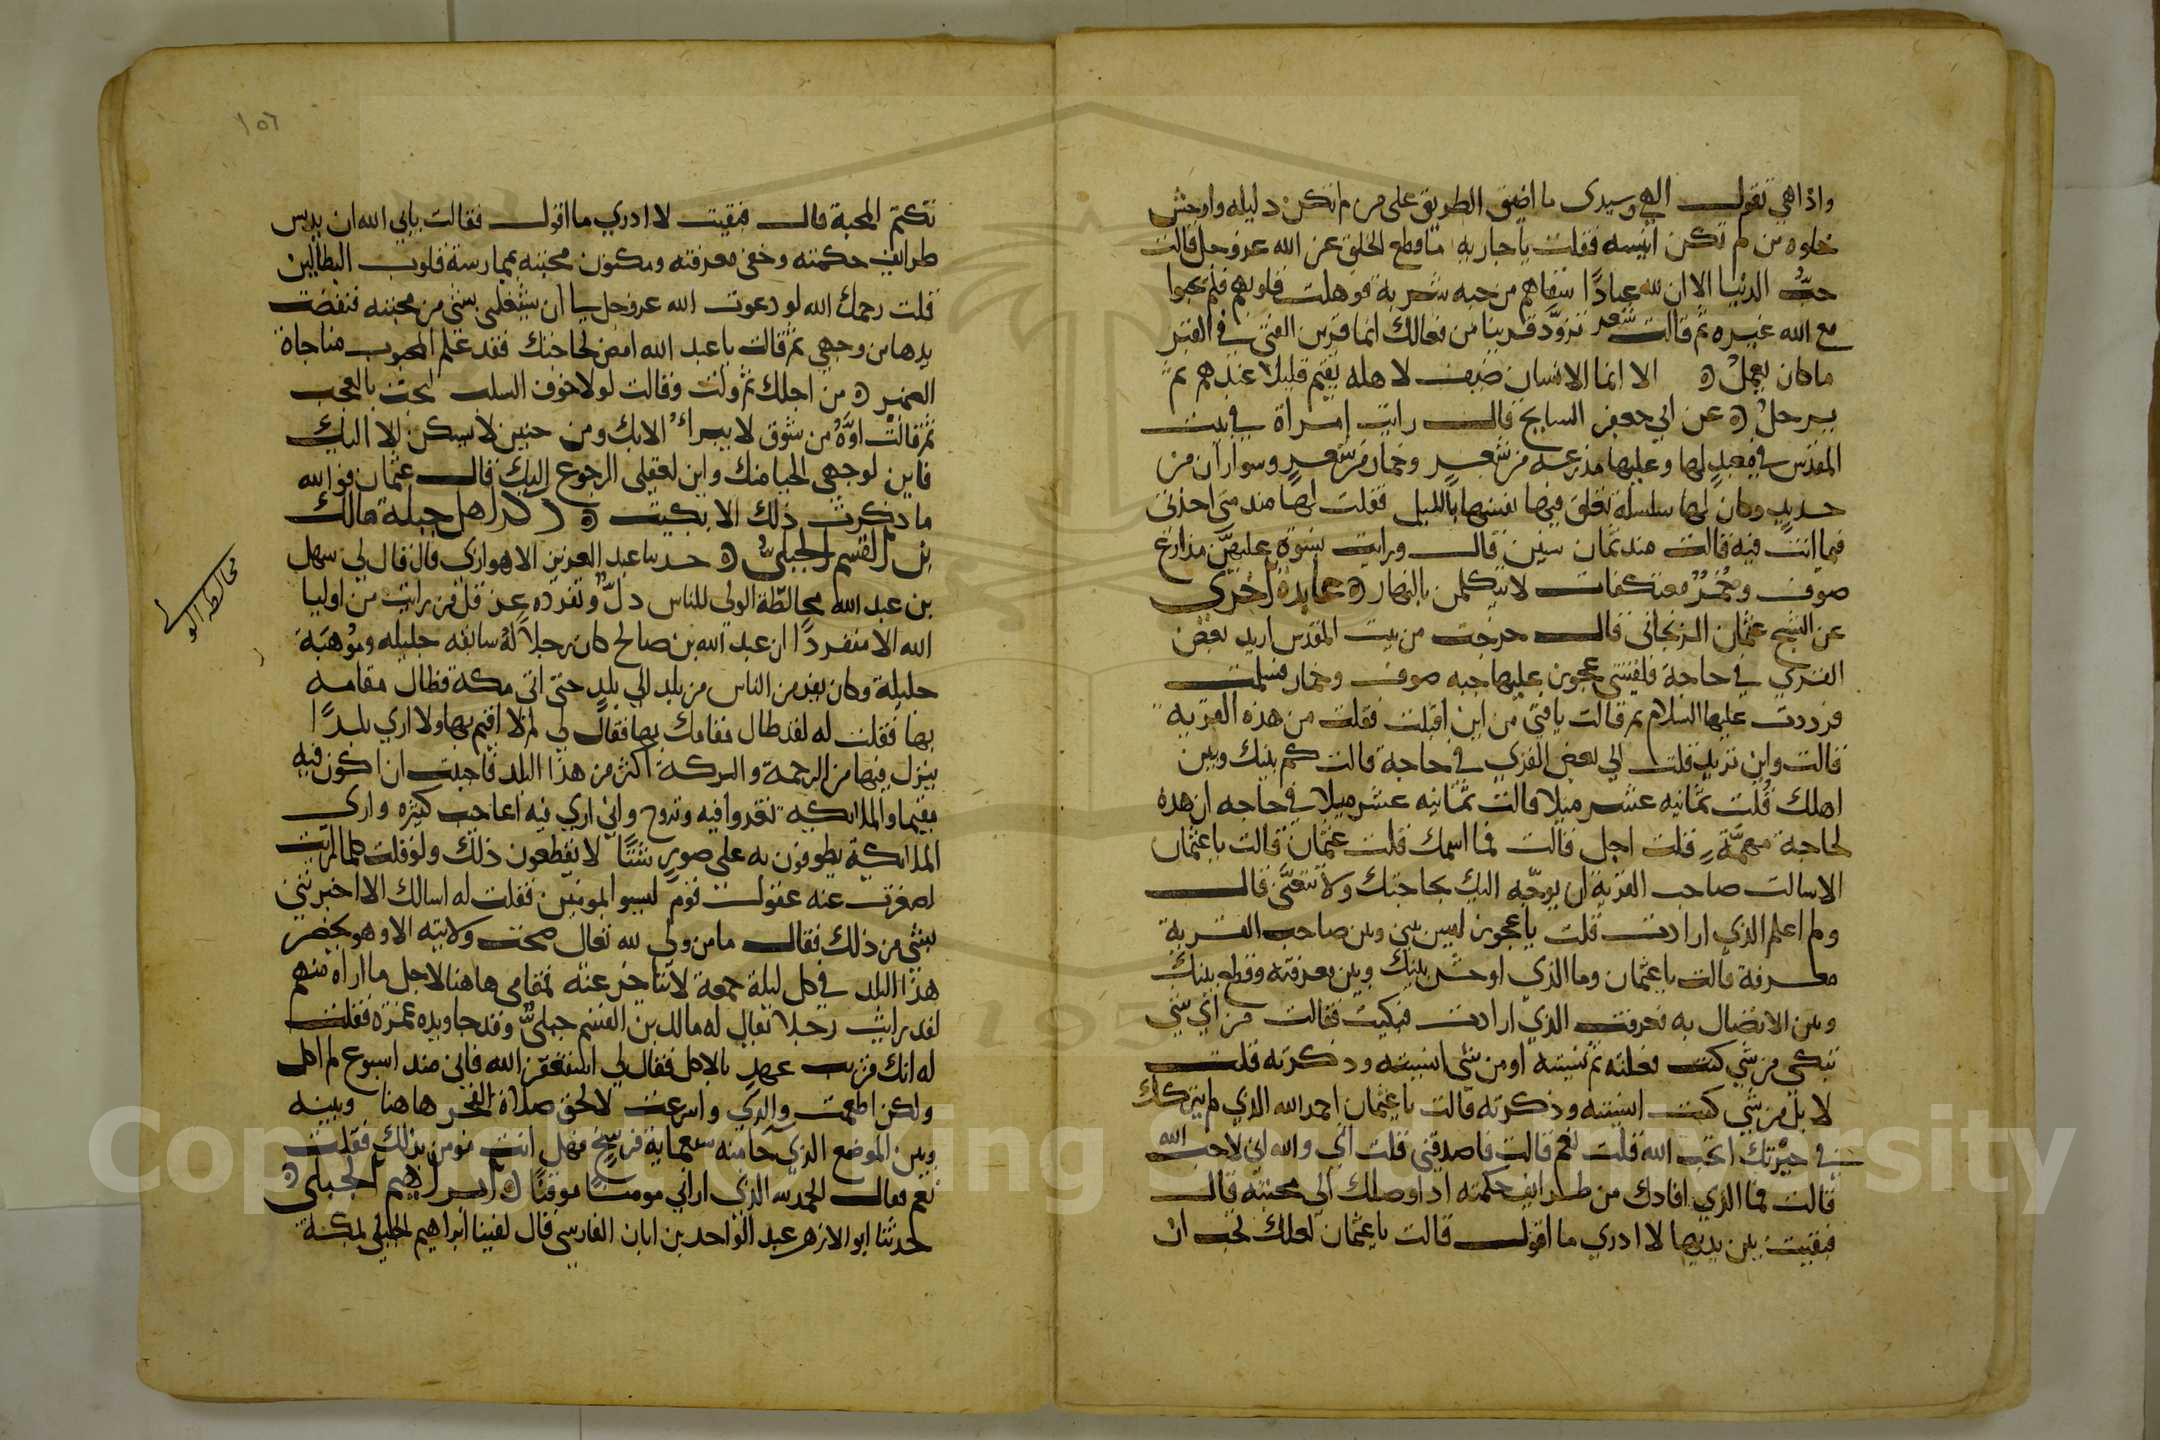 واذا هي تقول الهي وسيدي ما اضيق الطريق على من لم تكن دليله واوحش
خلوة من لم تكن انيسه فقلت يا جارية ما قطع الخلق عن الله عز وجل قالت
حبُّ الدنيا الا ان لله عبادًا اسقاهم من حبه شربة فولهت قلوبهم فلم يحبوا
مع الله غيره ثم قالت شعر تزوّد قرينا من فعالك انما قرين الفتى في القبر
ما كان يعمل ه الا انما الانسان ضيف لاهله يقيم قليلا عندهم ثم
يرحل ه عن ابي جعفر السايح قال رايت امراة في بيت
المقدس في معبد لها وعليها مدرعة من شعر وخمار من شعر وسواران من
حديد وكان لها سلسلة تعلق فيها نفسها بالليل فقلت لها منذ متى اخذتي
فيما انت فيه قالت منذ ثمان سنين قال ورايت نسوة عليهن مدارع
صوف وخُمُرٌ معتكفات لا يتكلمن بالنهار ه عابدة اخرى
عن الشيخ عثمان الزنجاني قال خرجت من بيت المقدس اريد بعض
القرى في حاجة فلقيتني عجوز عليها جبه صوف وخمار فسلمت
فرددت عليها السلام ثم قالت يا فتى من اين اقبلت فقلت من هذه القرية
قالت واين تريد قلت الى بعض القرى في حاجة قالت كم بينك وبين
اهلك قُلت ثمانيه عشر ميلا قالت ثمانيه عشر ميلا في حاجه ان هذه
لحاجة مهمَّة قلت اجل قالت فما اسمك قلت عثمان قالت يا عثمان
الا سالت صاحب القرية ان يوجّه اليك بحاجتك ولا تتعنَّى قال
ولم اعلم الذي ارادت قلت يا عجوز ليس بيني وبين صاحب القرية
معرفة قالت يا عثمان وما الذي اوحش بينك وبين معرفته وقطع بينك
وبين الاتصال به فعرفت الذي ارادت فبكيت فقالت من اي شي
تبكي من شي كنت فعلته ثم نسيته او من شي انسيته وذكرته قلت
لا بل من شي كنت انسيته وذكرته قالت يا عثمان احمد الله الذي لم يتركك
في حيرتك اتحب الله قلت نعم قالت فاصدقني قلت اي والله اني لاحب الله
قالت فما الذي افادك من طرايف حكمته اذ اوصلك الى محبته قال
فبقيت بين يديها لا ادري ما اقول قالت يا عثمان لعلك تحب ان
١٥٦
تكتم المحبة قال فبقيت لا ادري ما اقول فقالت يابى الله ان يدنس
طرايف حكمته وخفي معرفته ومكنون محبته بممارسة قلوب البطالين
قلت رحمك الله لو دعوت الله عز وجل لي ان يشغلني بشي من محبته فنفضت
يدها من وجهي ثم قالت يا عبد الله امض لحاجتك فقد علم المحبوب مناجاة
الضمير ه من اجلك ثم ولت وقالت لولا خوف السلب لبحت بالعجب
ثم قالت اوَّهْ من شوق لا يبرأ الا بك ومن حنين لا يسكن الا اليك
فاين لوجهي الحيا منك واين لعقلي الرجوع اليك قال عثمان فوالله
ما ذكرت ذلك الا بكيت ه ذكر اهل جبلة مالك
بن القسم الجبليُّ ه حدثنا عبد العزيز الاهوازي قال قال لي سهل
بن عبد الله مخالطة الولي للناس ذلٌّ وتفرده عز قل من رايت من اوليا
الله الا متفردًا ان عبد الله بن صالح كان رجلا له سابقه جليله وموهبة
جليلة وكان يفر من الناس من بلد الى بلد حتى اتى مكة فطال مقامه
بها فقلت له لقد طال مقامك بها فقال لي لم لا اقيم بها ولا ارى بلدًا
ينزل فيها من الرحمة والبركة اكثر من هذا البلد فاحببت ان اكون فيه
مقيما والملائكة تغدوا فيه وتروح واني ارى فيه اعاجيب كثيره وارى
الملائكة يطوفون به على صور شتَّا لا يقطعون ذلك ولو قلت كلما رايت
لصغرت عنه عقول قوم ليسوا بمومنين فقلت له اسالك الا اخبرتني
بشي من ذلك فقال ما من ولي لله تعالى صحت ولايته الا وهو يحضر
هذا البلد في كل ليلة جمعة لا يتاخر عنه فمقامي هاهنا لاجل ما اراه منهم
لقد رايت رجلا يقال له مالك بن القسم جبليٌّ وقد جا ويده غمرة فقلت
له انك قريب عهد بالاكل فقال لي استغفر الله فاني منذ اسبوع لم اكل
ولكن اطعمت والدتي واسرعت لالحق صلاة الفجر هاهنا وبينه
وبين الموضع الذي جا منه سبعماية فرسخ فهل انت مومن بذلك فقلت
نعم فقال الحمد لله الذي اراني مومنًا موقنًا ه ابراهيم الجبلي ه
حدثنا ابو الازهر عبد الواحد بن ابان الفارسي قال لقينا ابراهيم الجبلي بمكة
مخالطة الولي
Copyright © King Saud University
195